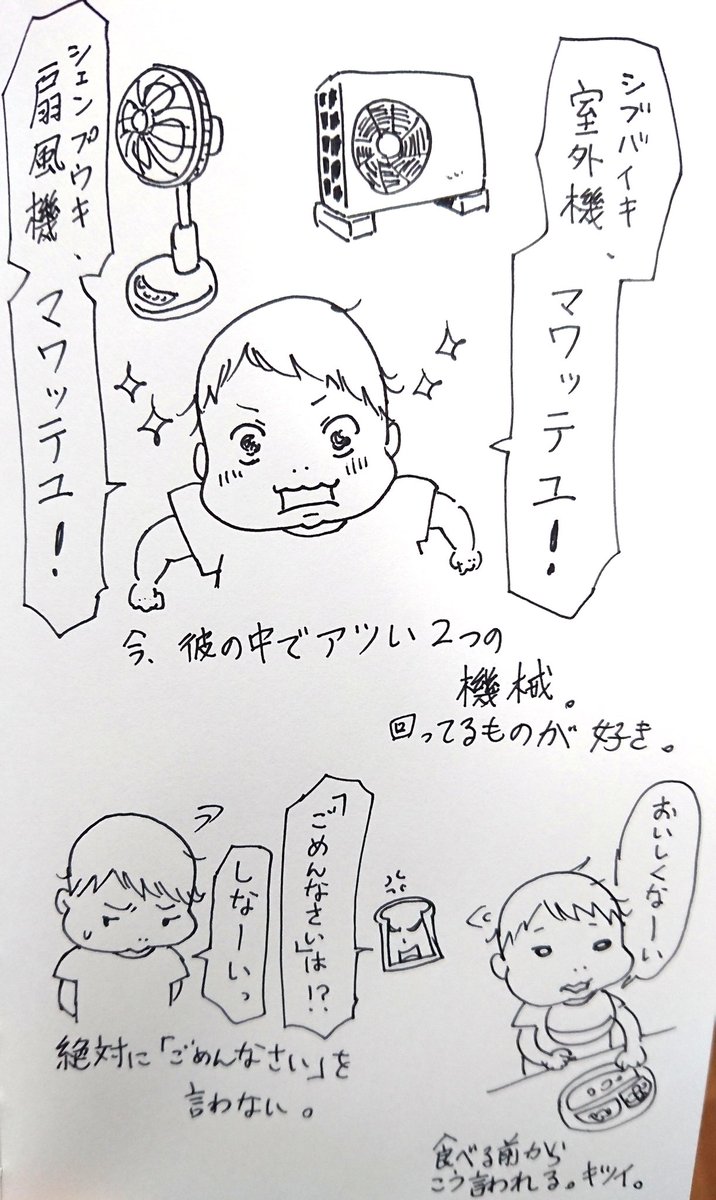 シブバイキ
室外機、
マワッテユ！
シェンプウキ
扇風機、
マワッテユ！
今、彼の中でアツい2つの
機械。
回ってるものが好き。
「ごめんなさい」は!?
しなーいっ
絶対に「ごめんなさい」を
言わない。
おいしくなーい
食べる前から
こう言われる。キツイ。